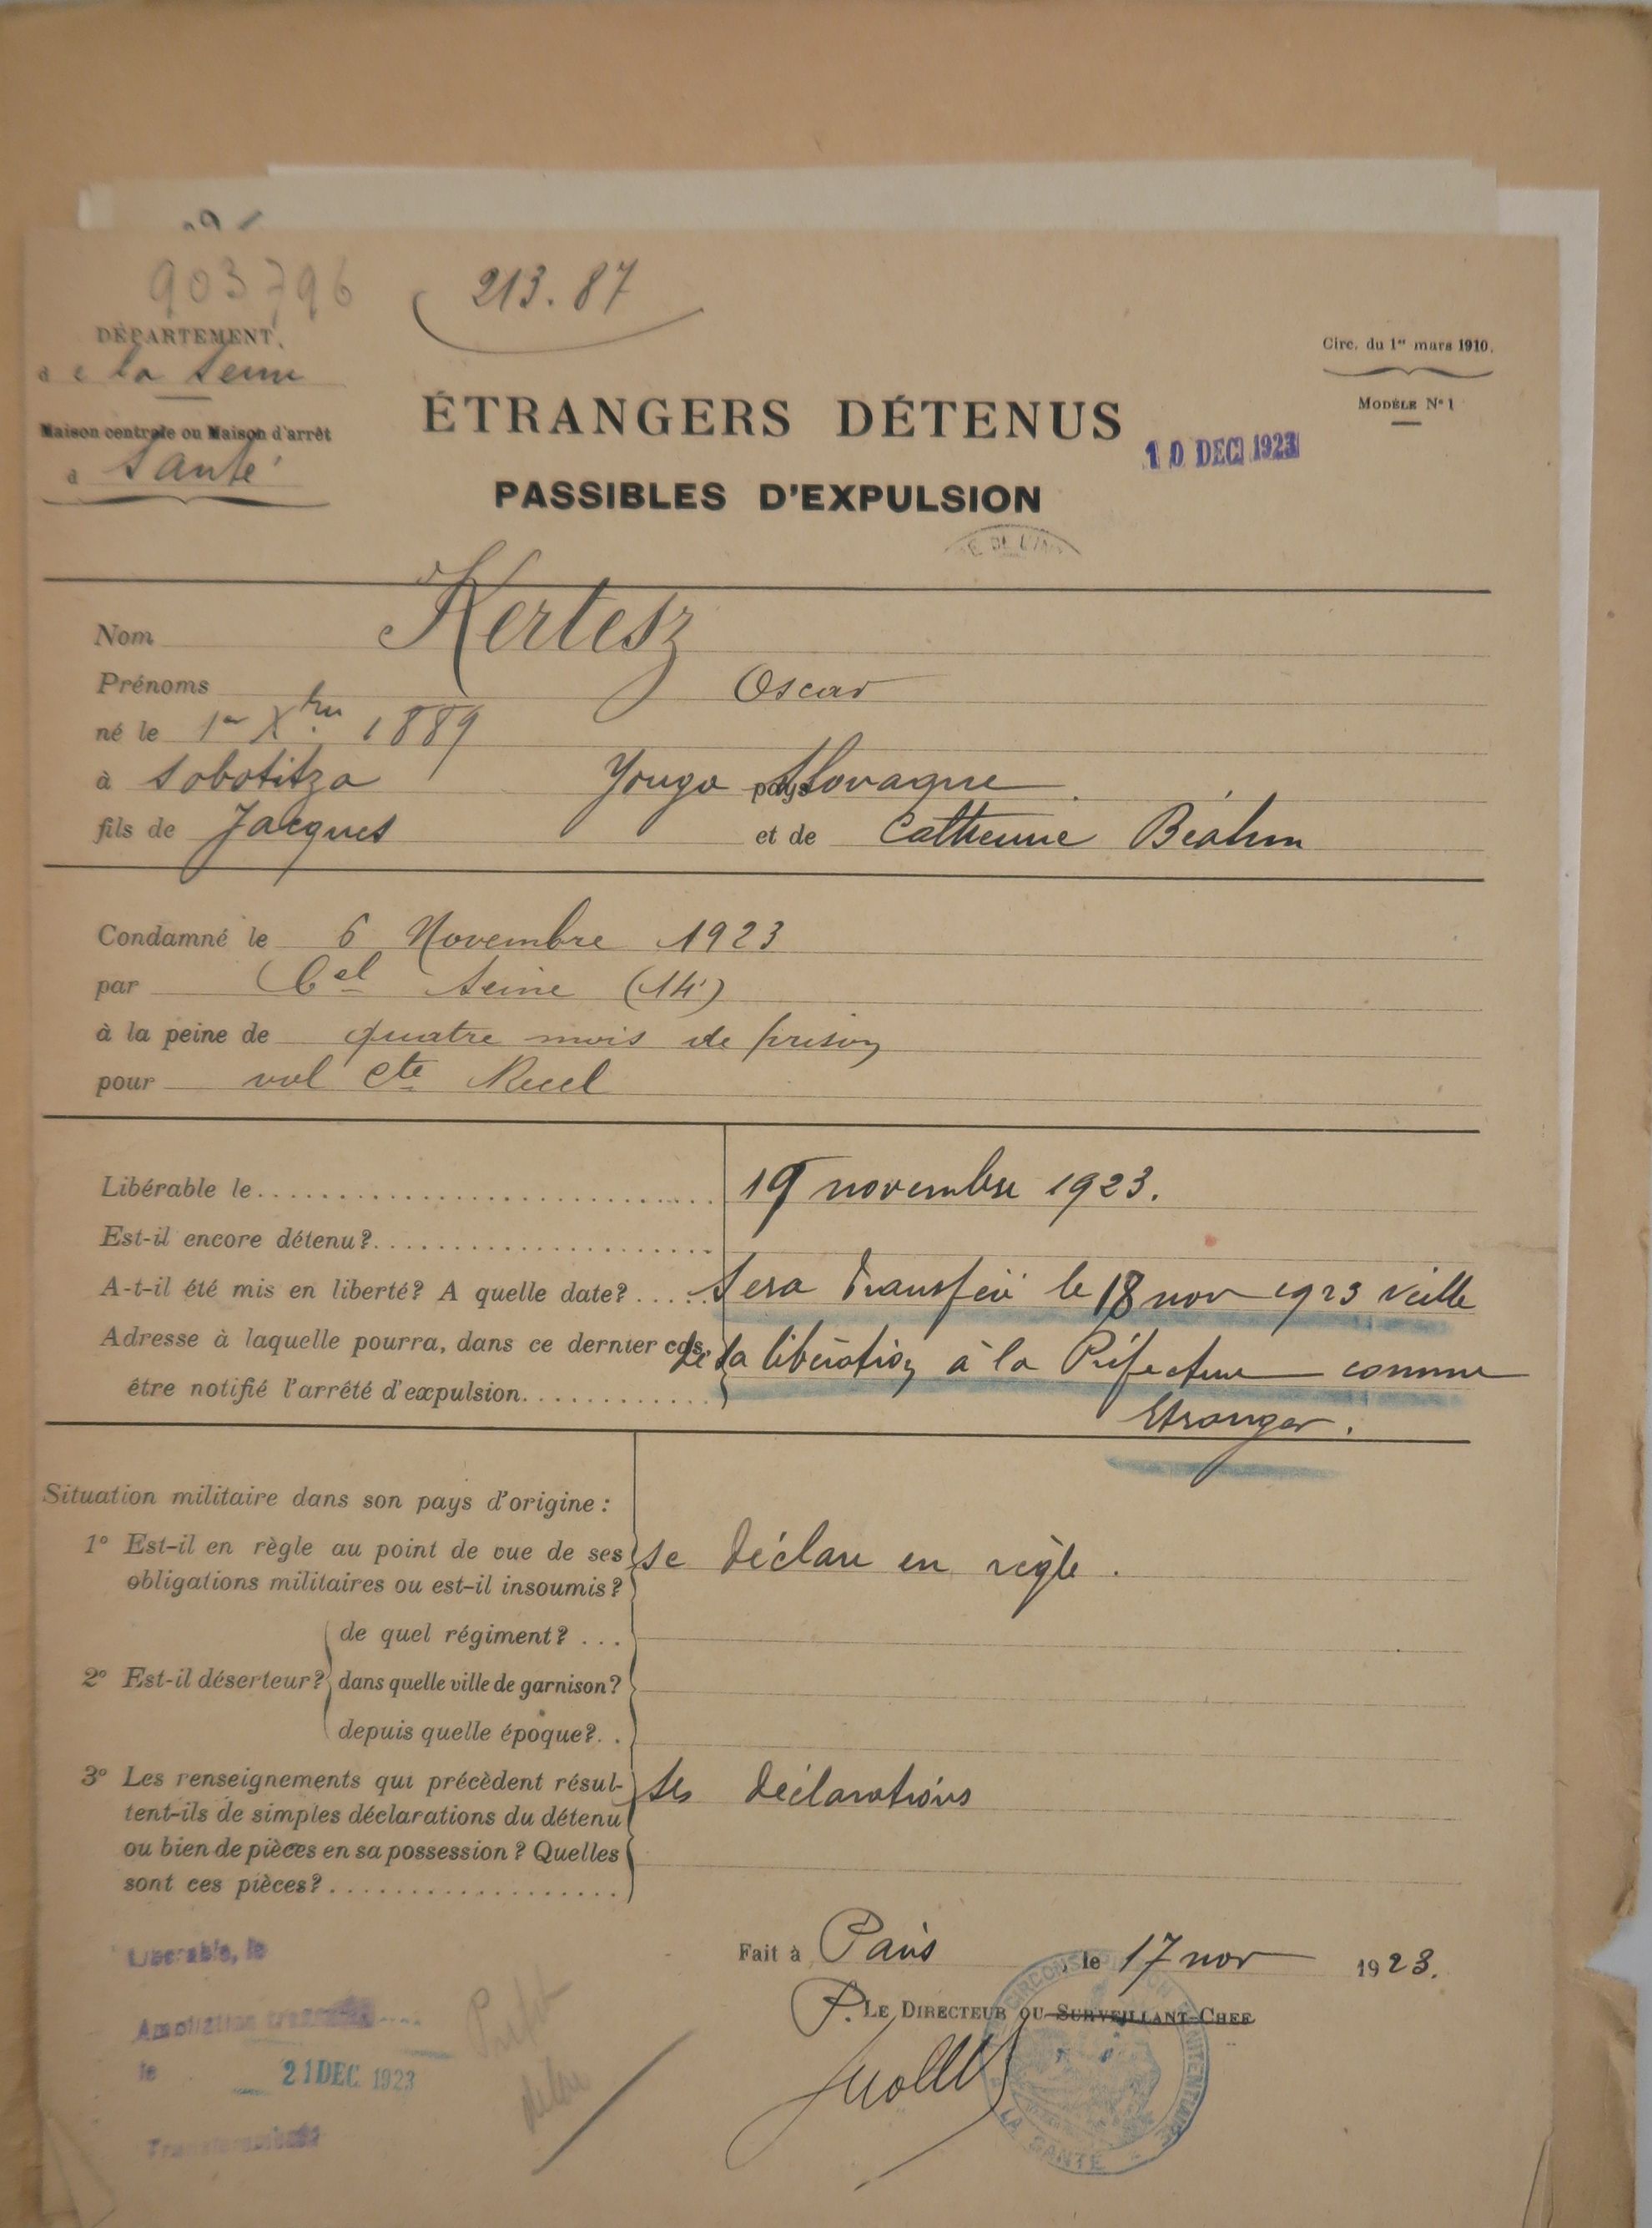 903796
213.87
DÉPARTEMENT
de la Seine
Maison centrale ou Maison d'arrêt
à Santé
Circ. du 1er mars 1910.
MODÈLE N° 1
ÉTRANGERS DÉTENUS
10 DEC 1923
PASSIBLES D'EXPULSION
Nom Kertesz
Prénoms Oscar
né le 1er Xbre 1889
à Sobotitza pays Yougo Slovaquie
fils de Jacques et de Catherine Béahm
Condamné le 6 Novembre 1923
par Cel Seine (14e)
à la peine de quatre mois de prison
pour vol cte Recel
Libérable le 19 novembre 1923.
Est-il encore détenu?
A-t-il été mis en liberté? A quelle date? Sera transféré le 18 nov 1923 veille
Adresse à laquelle pourra, dans ce dernier cas, de sa libération à la Préfecture comme
être notifié l'arrêté d'expulsion. Etranger.
Situation militaire dans son pays d'origine :
1° Est-il en règle au point de vue de ses se déclare en règle.
obligations militaires ou est-il insoumis?
de quel régiment?
2° Est-il déserteur? dans quelle ville de garnison?
depuis quelle époque?
3° Les renseignements qui précèdent résul- ses déclarations
tent-ils de simples déclarations du détenu
ou bien de pièces en sa possession? Quelles
sont ces pièces?
Libérable, le
Fait à Paris, le 17 nov 1923.
P. LE DIRECTEUR OU SURVEILLANT-CHEF
Ampliation transmise
le 21 DEC 1923
LA SANTÉ